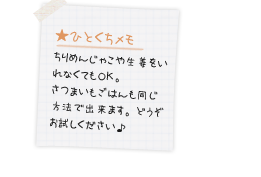 ★ひとくちメモ
ちりめんじゃこや生姜をい
れなくてもOK。
さつまいもごはんも同じ
方法で出来ます。どうぞ
お試しください♪